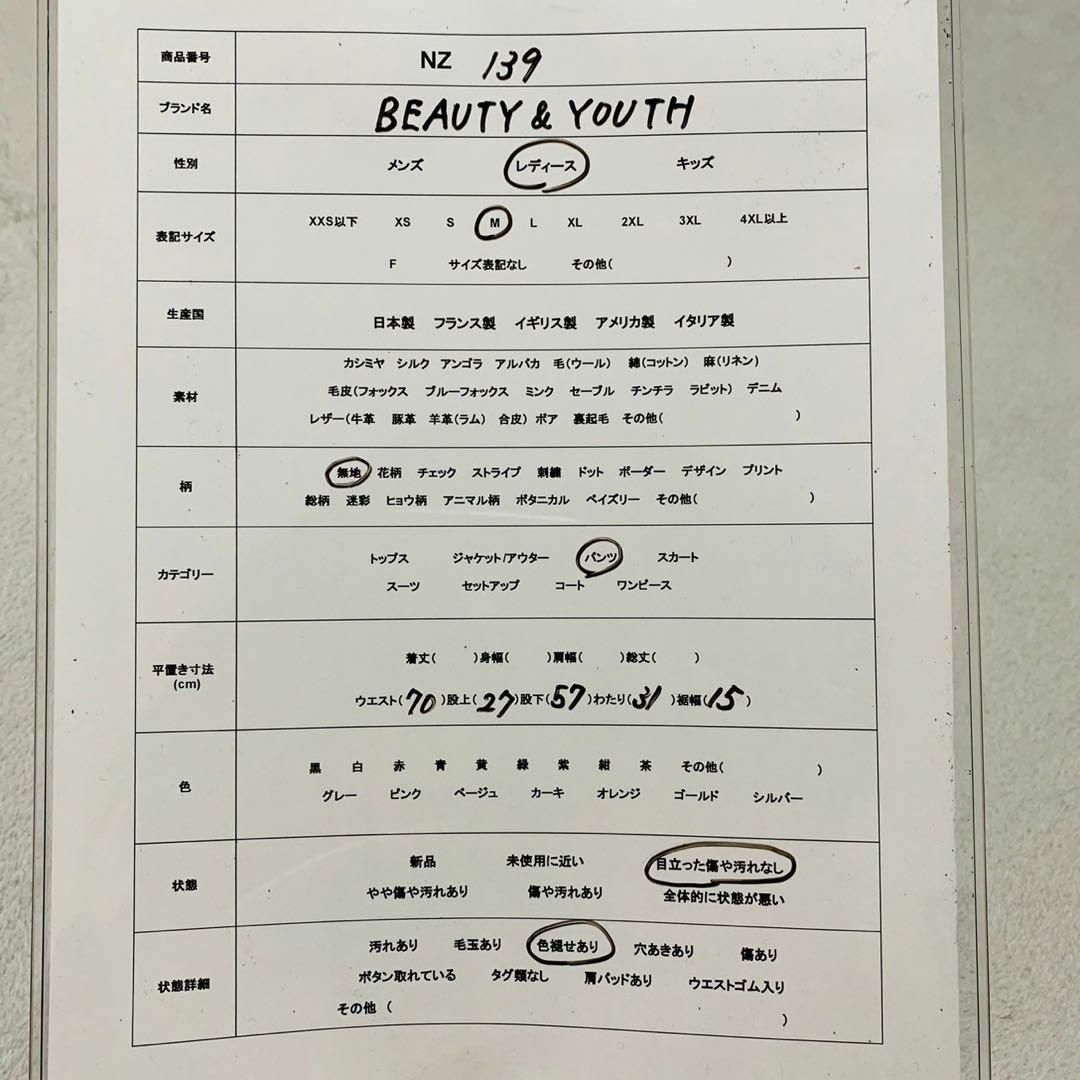 商品番号 NZ 139
ブランド名 BEAUTY & YOUTH
性別 メンズ レディース キッズ
表記サイズ XXS以下 XS S M L XL 2XL 3XL 4XL以上
F サイズ表記なし その他( )
生産国 日本製 フランス製 イギリス製 アメリカ製 イタリア製
素材 カシミヤ シルク アンゴラ アルパカ 毛(ウール) 綿(コットン) 麻(リネン)
毛皮(フォックス ブルーフォックス ミンク セーブル チンチラ ラビット) デニム
レザー(牛革 豚革 羊革(ラム) 合皮) ボア 裏起毛 その他( )
柄 無地 花柄 チェック ストライプ 刺繍 ドット ボーダー デザイン プリント
総柄 迷彩 ヒョウ柄 アニマル柄 ボタニカル ペイズリー その他( )
カテゴリー トップス ジャケット/アウター パンツ スカート
スーツ セットアップ コート ワンピース
平置き寸法 (cm) 着丈( )身幅( )肩幅( )総丈( )
ウエスト(70)股上(27)股下(57)わたり(31)裾幅(15)
色 黒 白 赤 青 黄 緑 紫 紺 茶 その他( )
グレー ピンク ベージュ カーキ オレンジ ゴールド シルバー
状態 新品 未使用に近い 目立った傷や汚れなし
やや傷や汚れあり 傷や汚れあり 全体的に状態が悪い
状態詳細 汚れあり 毛玉あり 色褪せあり 穴あきあり 傷あり
ボタン取れている タグ類なし 肩パッドあり ウエストゴム入り
その他 ( )